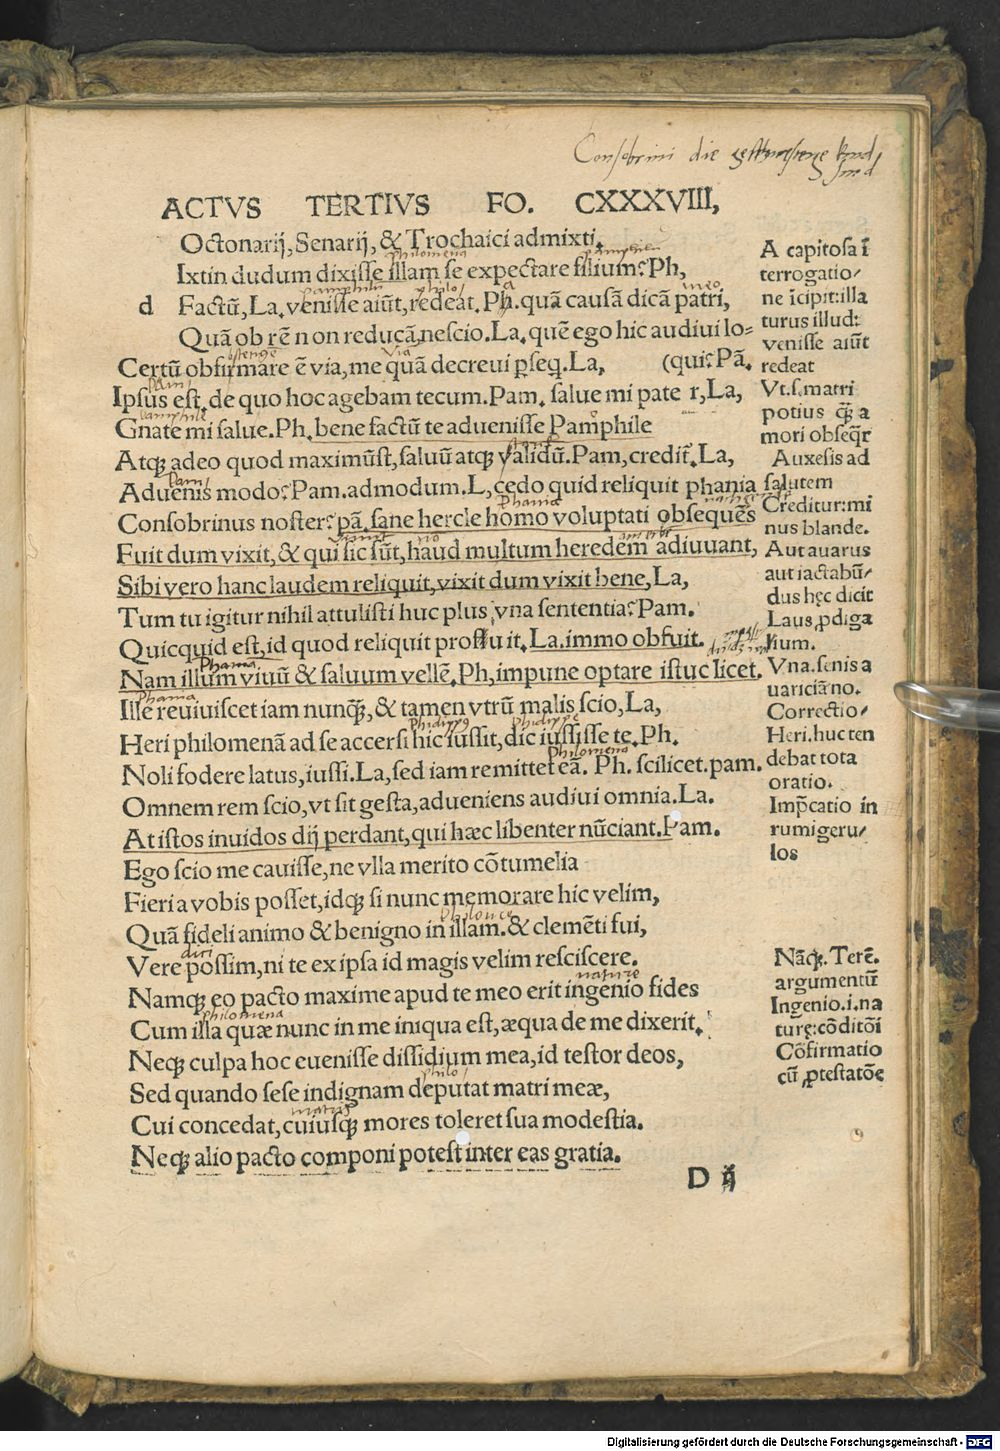 Consobrini die kind
sind
ACTVS TERTIVS FO. CXXXVIII,
Octonarij, Senarij, & Trochaici admixti.
philomena pamphilū
Ixtin dudum dixisse illam se expectare filium? Ph,
pamphilū philo/ a meo
d Factū, La. venisse aiūt, redeat. Ph. quā causā dicā patri,
Quā ob rē non reducā, nescio. La. quē ego hic audiui lo=
via
Certū obfirmare ē via, me quā decreui ꝑseq. La, (qui? Pā.
pam/
Ipsus est. de quo hoc agebam tecum. Pam. salue mi pate r, La,
pamphile
Gnate mi salue. Ph. bene factū te aduenisse Pamphile
Atqꝫ adeo quod maximūst, saluū atqꝫ validū. Pam, credit᷑. La,
pam/
Aduenis modo? Pam. admodum. L, cedo quid reliquit phania
phania
Consobrinus noster? pā. sane hercle homo voluptati obsequēs
Fuit dum vixit, & qui sic sūt, haud multum heredem adiuuant,
Sibi vero hanc laudem reliquit, vixit dum vixit bene, La,
Tum tu igitur nihil attulisti huc plus vna sententia? Pam.
Quicquid est, id quod reliquit profuit. La. immo obfuit.
phania
Nam illum viuū & saluum vellē. Ph, impune optare istuc licet.
phania
Ille reuiuiscet iam nunqꝫ, & tamen vtrū malis scio, La,
phidippꝰ phidippe
Heri philomenā ad se accersi hic iussit, dic iussisse te. Ph.
philomena
Noli fodere latus, iussi. La, sed iam remittet eā. Ph. scilicet. pam.
Omnem rem scio, vt sit gesta, adueniens audiui omnia. La.
At istos inuidos dij perdant, qui hæc libenter nūciant. Pam.
Ego scio me cauisse, ne vlla merito cōtumelia
Fieri a vobis posset, idqꝫ si nunc memorare hic velim,
Quā fideli animo & benigno in illam. & clemēti fui,
Vere possim, ni te ex ipsa id magis velim resciscere.
nature
Namqꝫ eo pacto maxime apud te meo erit ingenio fides
philomena
Cum illa quæ nunc in me iniqua est, æqua de me dixerit.
Neqꝫ culpa hoc euenisse dissidium mea, id testor deos,
philo/
Sed quando sese indignam deputat matri meæ,
matris
Cui concedat, cuiusqꝫ mores toleret sua modestia.
Neqꝫ alio pacto componi potest inter eas gratia.
D ij
A capitosa ī
terrogatio/
ne īcipit: illa
turus illud:
venisse aiūt
redeat
Vt. s. matri
potius qꝫ̄ a
mori obseq̄r
Auxesis ad
salutem
Creditur: mi
nus blande.
Aut auarus
aut iactabū/
dus hęc dicit
Laus ꝓdiga
lium.
Vna. senis a
uariciā no.
Correctio/
Heri. huc ten
debat tota
oratio.
Imp̄catio in
rumigeru/
los
Nāqꝫ. Terē.
argumentū
Ingenio. i. na
turę: cōditōi
Cōfirmatio
cū ꝓtestatōe
Digitalisierung gefördert durch die Deutsche Forschungsgemeinschaft - DFG